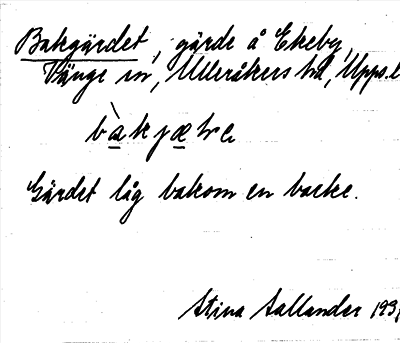 Bakgärdet, gärde å Ekeby,
Vänge sn, Ulleråkers hd, Upps.l
Gärdet låg bakom en backe.
Stina Sallander 193